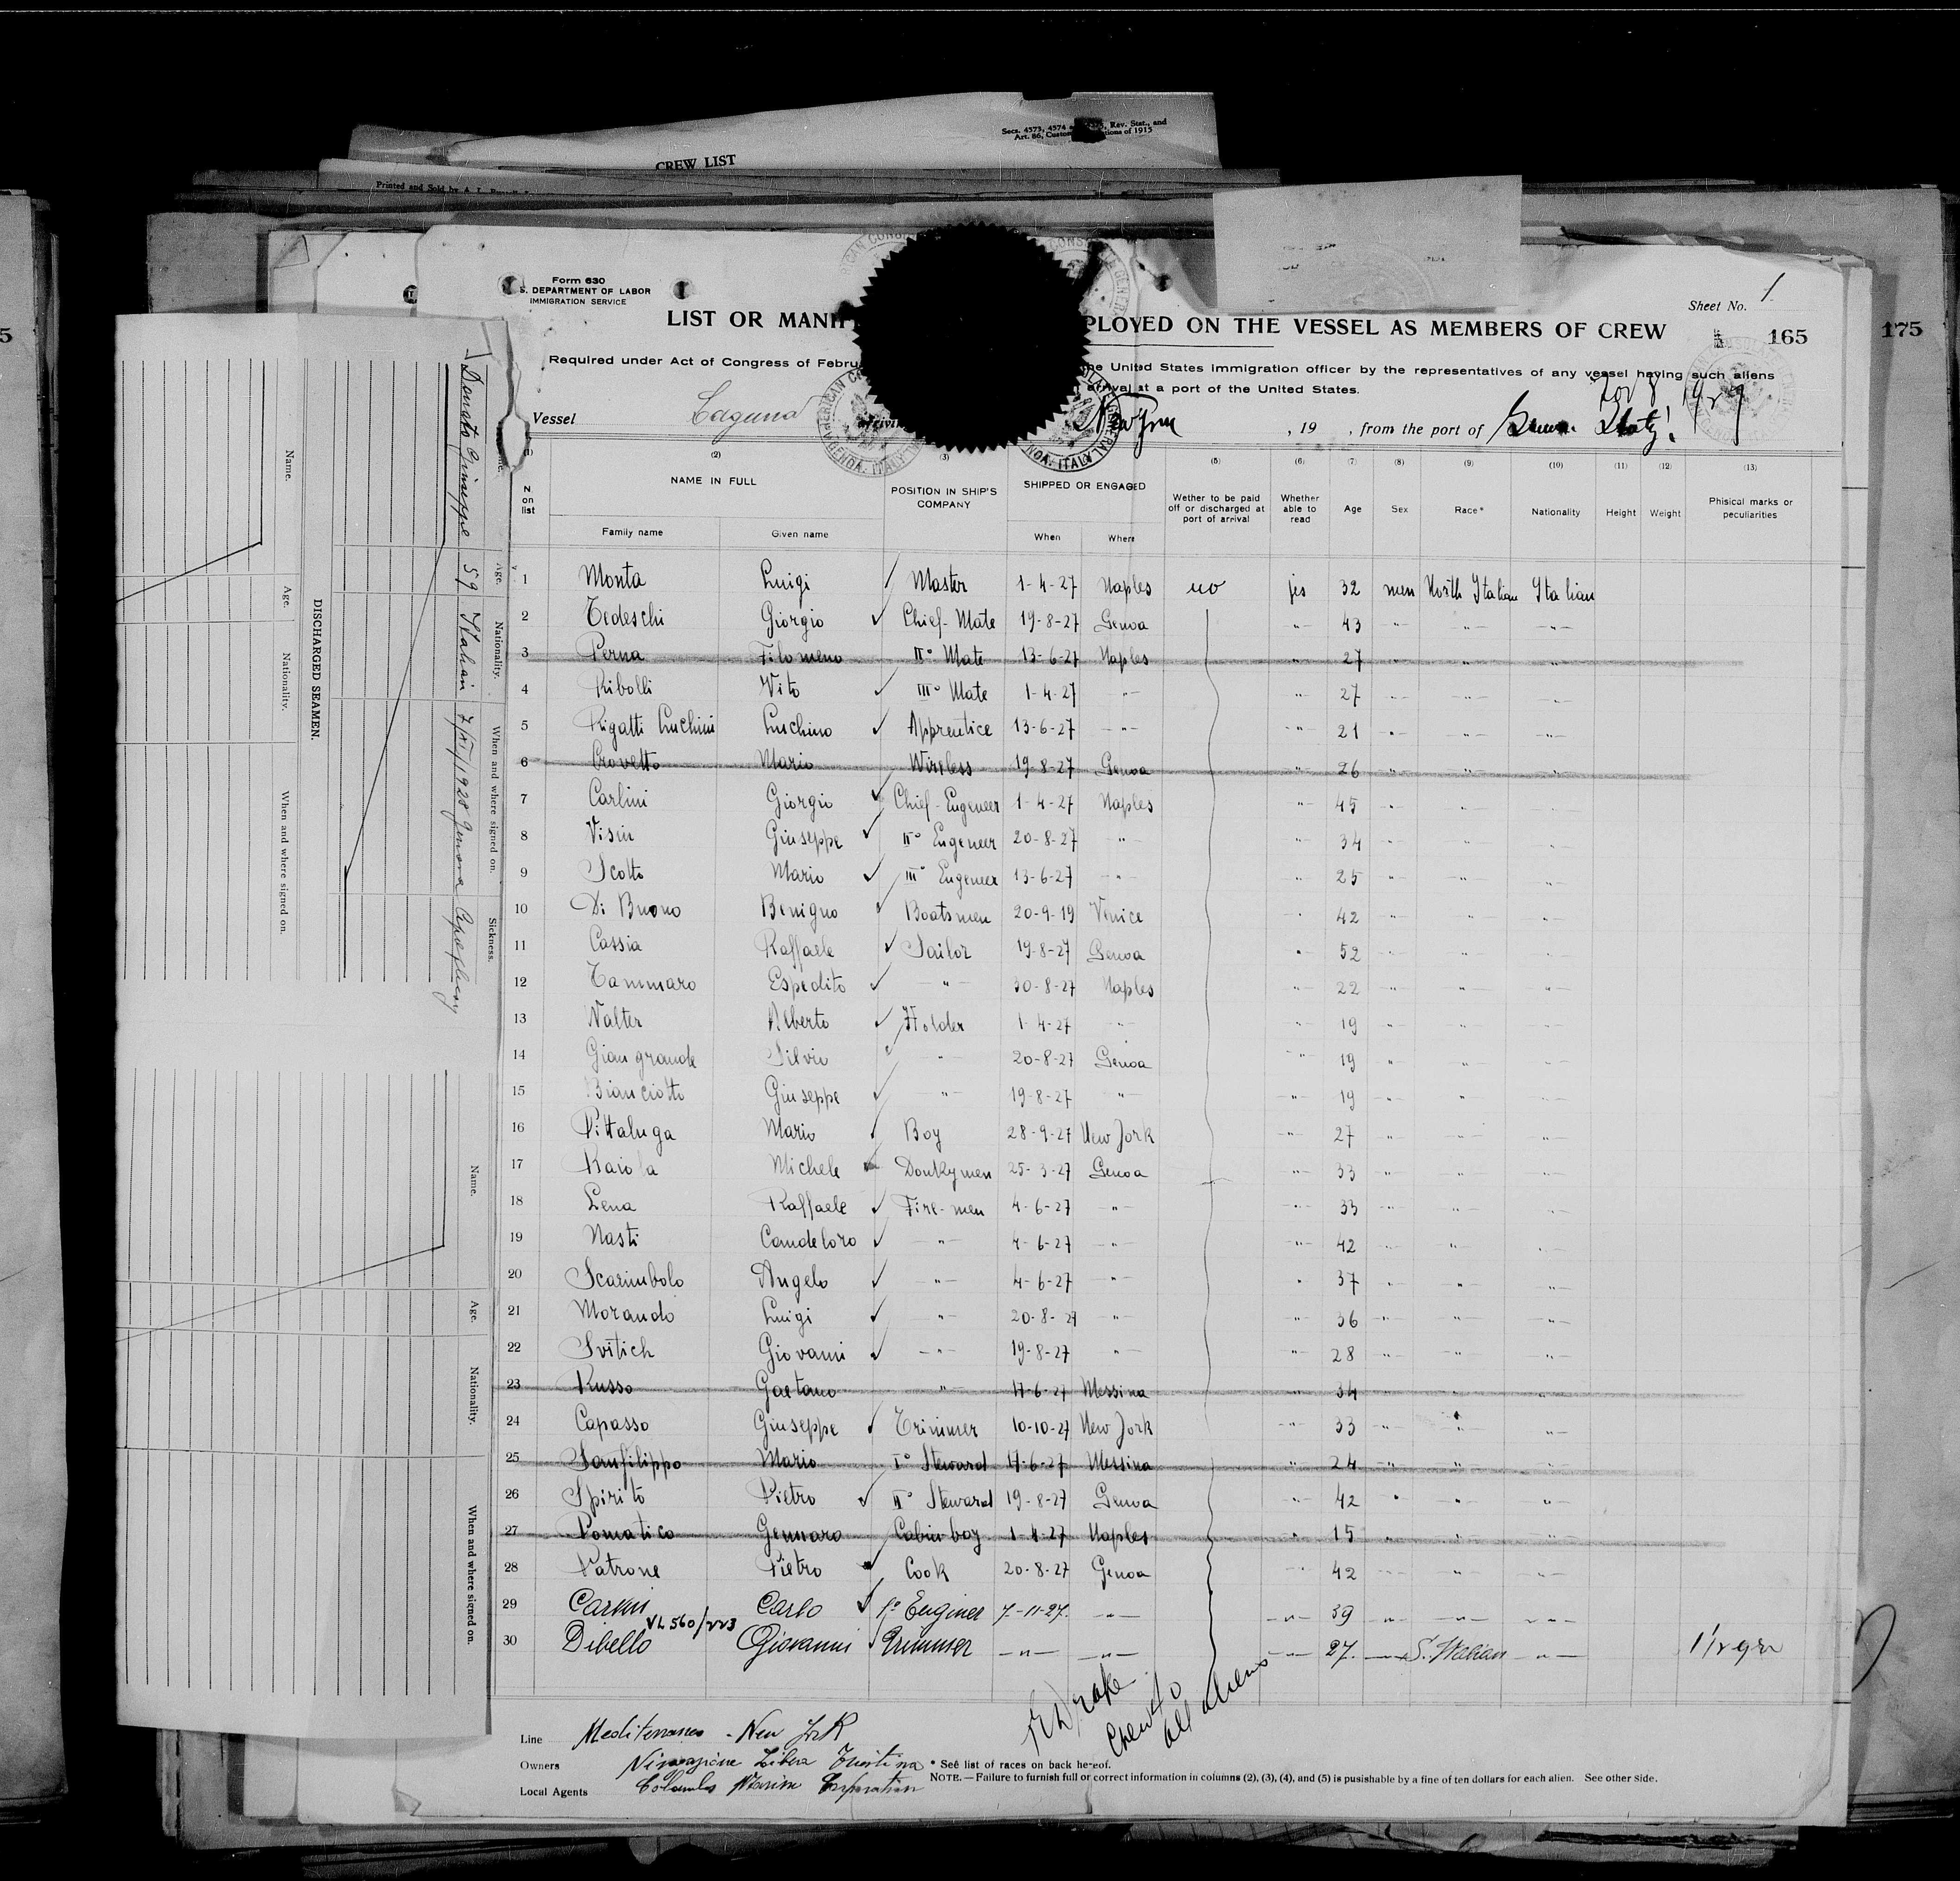 Secs. 4573, 4574 Rev. Stat., and
Art. 86, Custom tions of 1915
CREW LIST
Printed and Sold by A. L.
Sheet No. 1
Form 630
S. DEPARTMENT OF LABOR
IMMIGRATION SERVICE
LIST OR MANIF PLOYED ON THE VESSEL AS MEMBERS OF CREW
165
175
5
Required under Act of Congress of Febru he United States Immigration officer by the representatives of any vessel having such aliens
arrival at a port of the United States.
Nov 8 1927
Vessel Laguna arrivin New York , 19 , from the port of Genoa Italy
AMERICAN CONSULATE GENERAL
GENOA, ITALY
(2) (3) (5) (6) (7) (8) (9) (10) (11) (12) (13)
N. on list
NAME IN FULL
Family name Given name
POSITION IN SHIP'S COMPANY
SHIPPED OR ENGAGED
When Where
Wether to be paid off or discharged at port of arrival
Whether able to read
Age Sex Race* Nationality Height Weight
Phisical marks or peculiarities
1 Monta Luigi Master 1-4-27 Naples no jes 32 men North Italian Italian
2 Tedeschi Giorgio Chief-Mate 19-8-27 Genoa " 43 " " "
3 Perna Filomeno II° Mate 13-6-27 Naples " 27 " " "
4 Ribolli Vito III° Mate 1-4-27 " " 27 " " "
5 Rigatti Luchini Luchino Apprentice 13-6-27 " " 21 " " "
6 Crovetto Mario Wireless 19-8-27 Genoa " 26 " " "
7 Carlini Giorgio Chief-Engeneer 1-4-27 Naples " 45 " " "
8 Visin Giuseppe II° Engeneer 20-8-27 " " 34 " " "
9 Scotto Mario III° Engeneer 13-6-27 " " 25 " " "
10 Di Buono Benigno Boatsmen 20-9-19 Venice " 42 " " "
11 Cassia Raffaele Sailor 19-8-27 Genoa " 52 " " "
12 Tammaro Espedito " 30-8-27 Naples " 22 " " "
13 Walter Alberto Holder 1-4-27 " " 19 " " "
14 Giangrande Silvio " 20-8-27 Genoa " 19 " " "
15 Bianciotto Giuseppe " 19-8-27 " " 19 " " "
16 Pittaluga Mario Boy 28-9-27 New Jork " 27 " " "
17 Raiola Michele Donkymen 25-3-27 Genoa " 33 " " "
18 Lena Raffaele Fire-men 4-6-27 " " 33 " " "
19 Nasti Candeloro " 4-6-27 " " 42 " " "
20 Scarimbolo Angelo " 4-6-27 " " 37 " " "
21 Morando Luigi " 20-8-27 " " 36 " " "
22 Svitich Giovanni " 19-8-27 " " 28 " " "
23 Russo Gaetano " 17-6-27 Messina " 34 " " "
24 Capasso Giuseppe Trimmer 10-10-27 New Jork " 33 " " "
25 Sanfilippo Mario I° Steward 17-6-27 Messina " 24 " " "
26 Spirito Pietro II° Steward 19-8-27 Genoa " 42 " " "
27 Pomatico Gennaro Cabin boy 1-4-27 Naples " 15 " " "
28 Patrone Pietro Cook 20-8-27 Genoa " 42 " " "
29 Carlo I° Enginer 7-11-27 " " 39 " " "
30 Dibello Giovanni Trimmer " " " 27 " S. Italian "
VL 560/
all aliens
Line Mediterraneo - New York
Owners Libera Triestina
Local Agents Columbus Marine Corporation
* See list of races on back hereof.
NOTE.—Failure to furnish full or correct information in columns (2), (3), (4), and (5) is pusishable by a fine of ten dollars for each alien. See other side.
DISCHARGED SEAMEN.
Name. Age. Nationality. When and where signed on. Sickness.
Donato Giuseppe 59 Italian 7/XI/1928 Genova
Name. Age. Nationality. When and where signed on.
Name. Age. Nationality. When and where signed on.